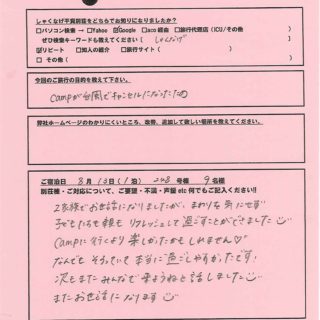 しゃくなげ平貸別荘をどちらでお知りになりましたか?
□パソコン検索 → □Yahoo ☑Google □aco経由 □旅行代理店(ICU/その他 )
ぜひ検索キーワードも教えてください( しゃくなげ )
☑リピート □知人の紹介 □旅行サイト( )
□その他( )
今回のご旅行の目的を教えて下さい。
campが台風でキャンセルになったため
弊社ホームページのわかりにくいところ、改善、追加して欲しい箇所を教えてください。
ご宿泊日 8月13日(1泊) 208号棟 9名様
別荘様・ご対応について、ご要望・不満・声援 etc 何でもご記入ください!!
2家族でお世話になりましたが、まわりを気にせず
子どもたちも親もリフレッシュして過ごすことができました
campに行くより楽しかったかもしれません♡
なんでもそろっていて本当に過ごしやすかったです!
次もまたみんなで来ようねと話しました
またお世話になります